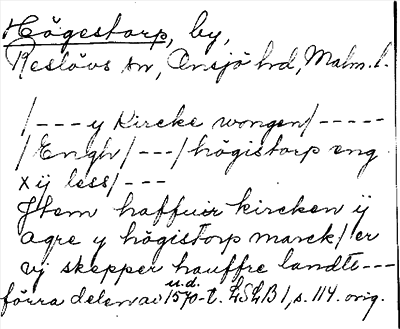 Högestorp, by,
Reslövs sn, Onsjö hd, Malm. l.
/--- y Kircke wongen/-----
/Engh/---/högistorp eng
xij less/---
Jtem haffuir kircken ij
agre y högistorp marck/er
vj skepper hauffre landtt---
förra delen av 1570-t. LSLB 1, s. 114. orig.
u.d.